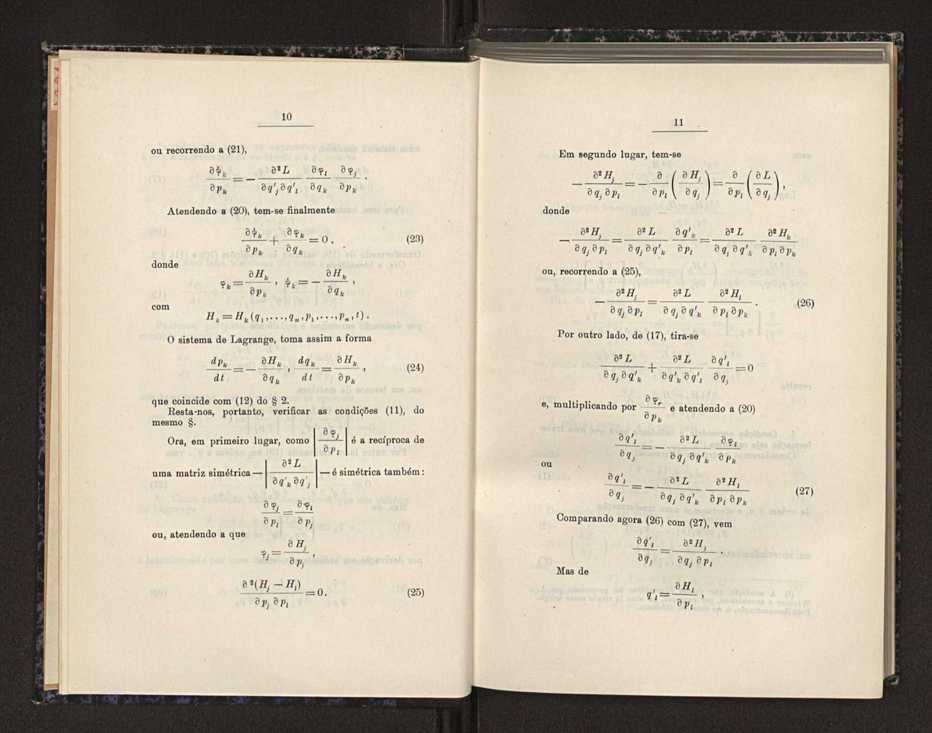 10
ou recorrendo a (21),
∂ψ̇ₖ/∂pₖ = − ∂²L/∂q'ⱼ∂q'ᵢ ∂φᵢ/∂qₖ ∂φⱼ/∂pₖ .
Atendendo a (20), tem-se finalmente
∂ψ̇ₖ/∂pₖ + ∂φₖ/∂qₖ = 0 . (23)
donde
φₖ = ∂Hₖ/∂pₖ , ψ̇ₖ = − ∂Hₖ/∂qₖ ,
com
Hₖ = Hₖ (q₁, ..., qₙ, p₁, ..., pₙ, t) .
O sistema de Lagrange, toma assim a forma
dpₖ/dt = − ∂Hₖ/∂qₖ , dqₖ/dt = ∂Hₖ/∂pₖ , (24)
que coincide com (12) do § 2.
Resta-nos, portanto, verificar as condições (11), do
mesmo §.
Ora, em primeiro lugar, como |∂φⱼ/∂pᵢ| é a recíproca de
uma matriz simétrica — |∂²L/∂q'ₖ∂q'ⱼ| — é simétrica também:
∂φⱼ/∂pᵢ = ∂φᵢ/∂pⱼ
ou, atendendo a que
φⱼ = ∂Hⱼ/∂pⱼ ,
∂²(Hⱼ − Hᵢ)/∂pⱼ ∂pᵢ = 0. (25)
11
Em segundo lugar, tem-se
− ∂²Hⱼ/∂qⱼ ∂pᵢ = − ∂/∂pᵢ (∂Hⱼ/∂qⱼ) = ∂/∂pᵢ (∂L/∂qⱼ) ,
donde
− ∂²Hⱼ/∂qⱼ ∂pᵢ = ∂²L/∂qⱼ ∂q'ₖ ∂q'ₖ/∂pᵢ = ∂²L/∂qⱼ ∂q'ₖ ∂²Hₖ/∂pᵢ ∂pₖ
ou, recorrendo a (25),
− ∂²Hⱼ/∂qⱼ ∂pᵢ = ∂²L/∂qⱼ ∂q'ₖ ∂²Hᵢ/∂pᵢ ∂pₖ . (26)
Por outro lado, de (17), tira-se
∂²L/∂qⱼ ∂q'ₖ + ∂²L/∂q'ₖ ∂q'ᵢ ∂q'ᵢ/∂qⱼ = 0
e, multiplicando por ∂φᵣ/∂pₖ e atendendo a (20)
∂q'ᵢ/∂qⱼ = − ∂²L/∂qⱼ ∂q'ₖ ∂φᵢ/∂pₖ
ou
∂q'ᵢ/∂qⱼ = − ∂²L/∂qⱼ ∂q'ₖ ∂²Hᵢ/∂pᵢ ∂pₖ (27)
Comparando agora (26) com (27), vem
∂q'ᵢ/∂qⱼ = ∂²Hⱼ/∂qⱼ ∂pᵢ .
Mas de
q'ᵢ = ∂Hᵢ/∂pᵢ ,